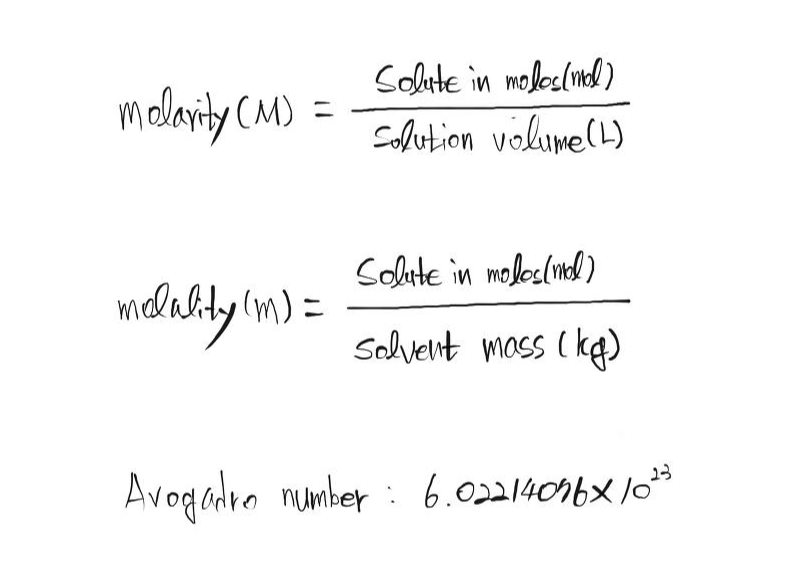 molarity (M) = Solute in moles(mol) / Solution volume(L)
molality (m) = Solute in moles(mol) / Solvent mass (kg)
Avogadro number : 6.02214076 × 10²³